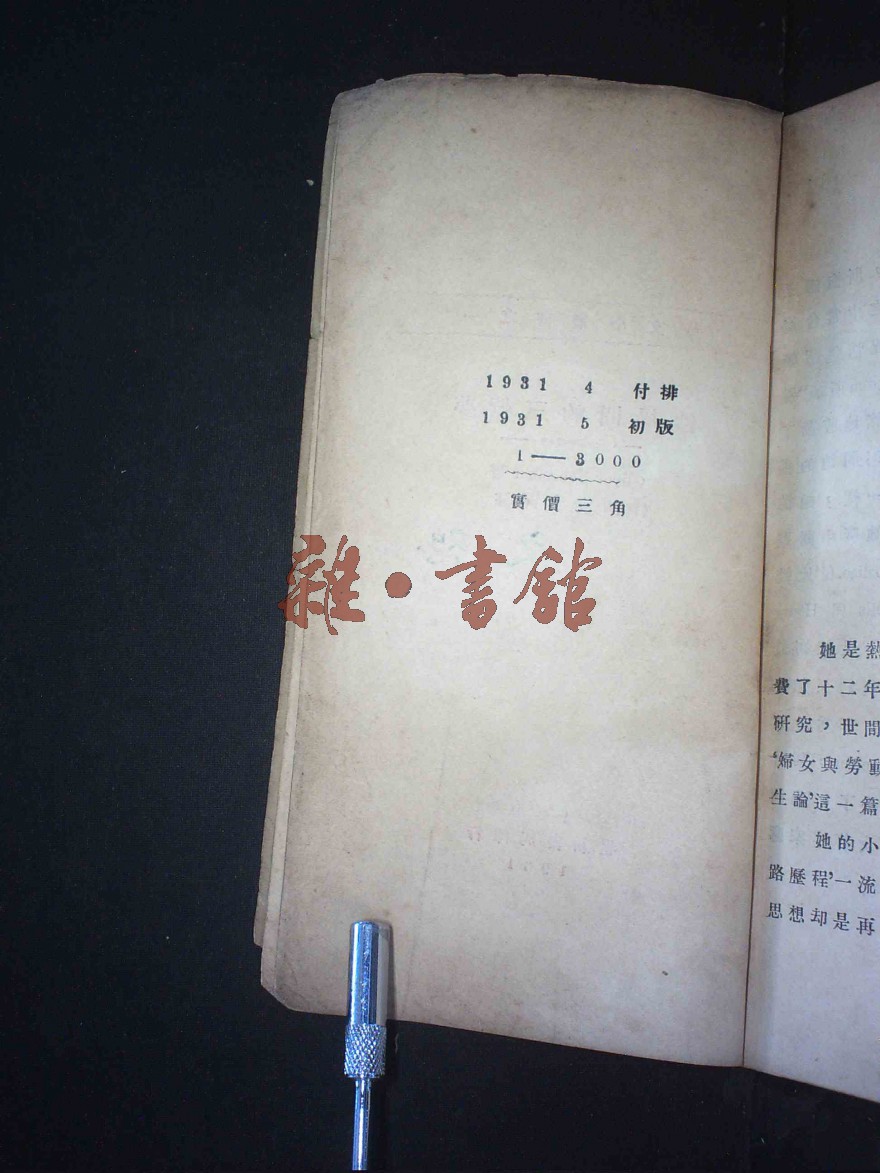 1931 4 付排
1931 5 初版
1——3000
實價三角
雜·書館
她是熱
費了十二年
研究，世間
‘婦女與勞動
生論’這一篇
她的小
路歷程’一流
思想却是再